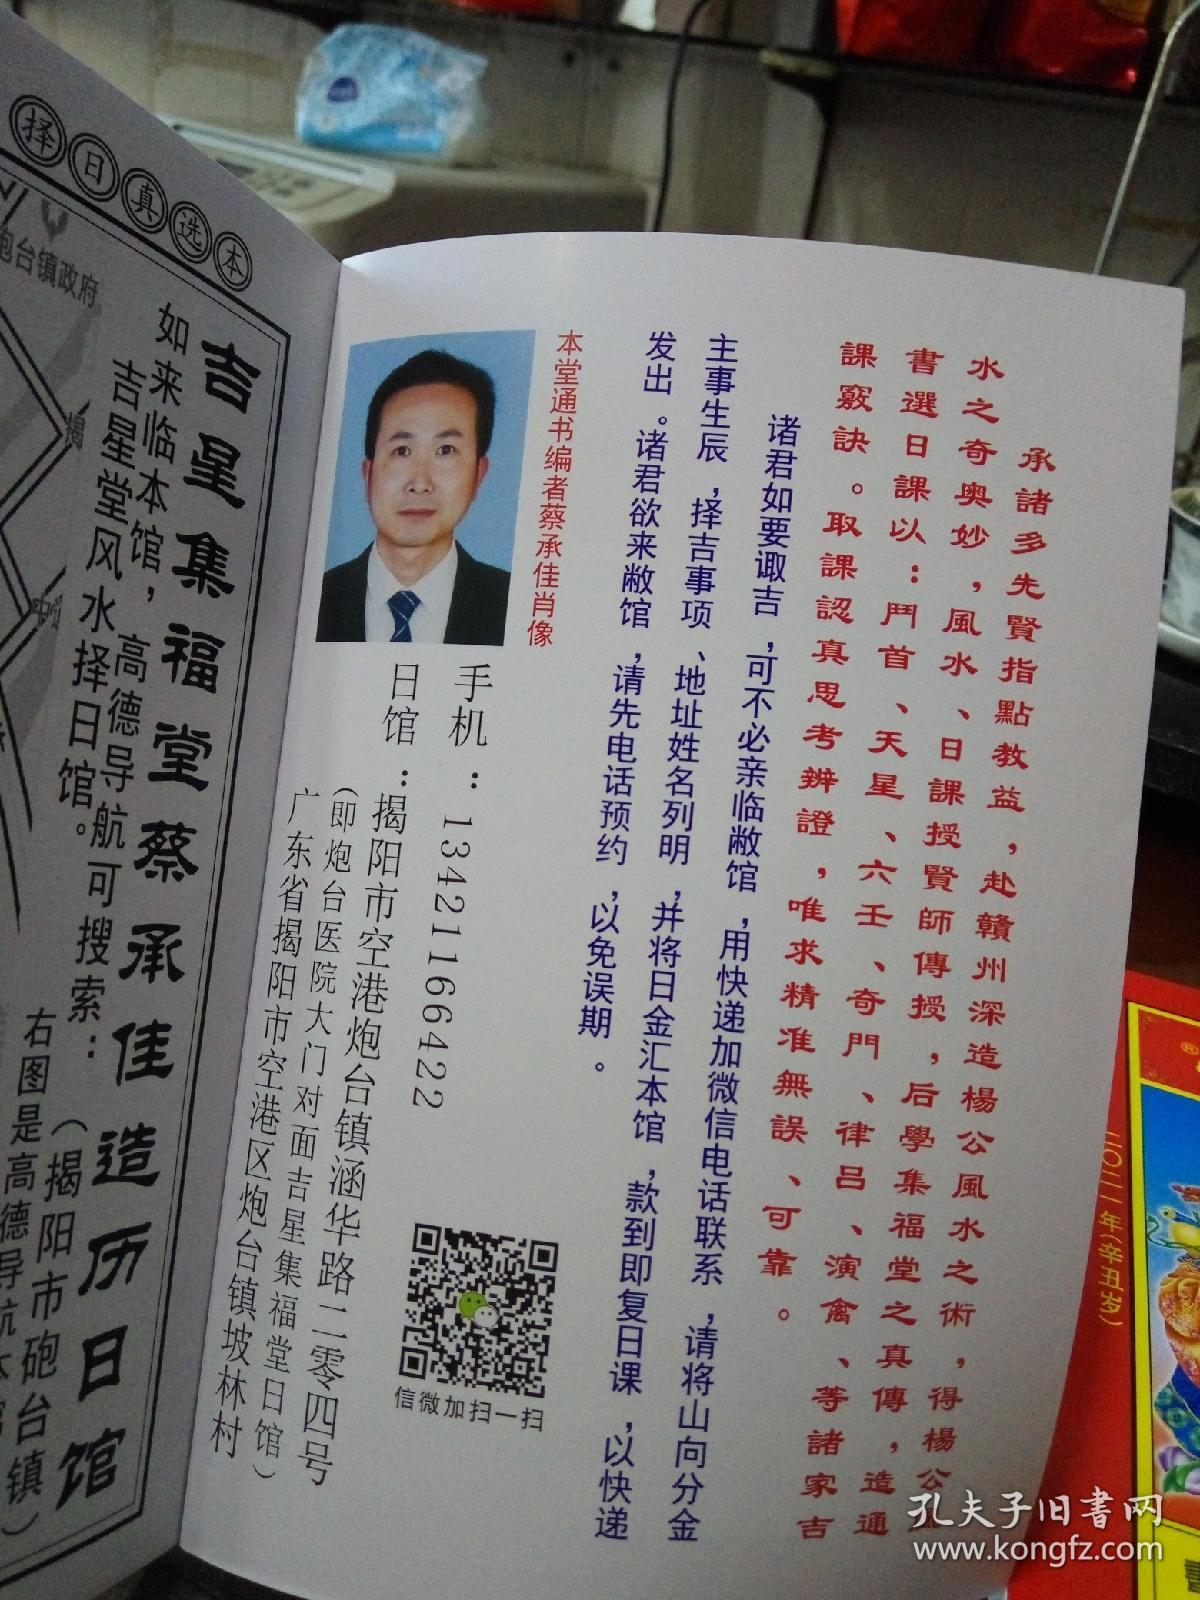 承諸多先賢指點教益，赴贛州深造楊公風水之術，得楊公風
水之奇奧妙，風水、日課授賢師傳授，后學集福堂之真傳，造通
書選日課以：鬥首、天星、六壬、奇門、律呂、演禽、等諸家吉
課竅訣。取課認真思考辨證，唯求精准無誤、可靠。
诸君如要诹吉，可不必亲临敝馆，用快递加微信电话联系，请将山向分金
主事生辰，择吉事项、地址姓名列明，并将日金汇本馆，款到即复日课，以快递
发出。诸君欲来敝馆，请先电话预约，以免误期。
本堂通书编者蔡承佳肖像
手机：13421166422
日馆：揭阳市空港炮台镇涵华路二零四号
（即炮台医院大门对面吉星集福堂日馆）
广东省揭阳市空港区炮台镇坡林村
信微加扫一扫
择日真选本
吉星集福堂蔡承佳造历日馆
如来临本馆，高德导航可搜索：（揭阳市砲台镇）
吉星堂风水择日馆。
右图是高德导航本
炮台镇政府
二〇二一年(辛丑岁)
孔夫子旧书网
www.kongfz.com